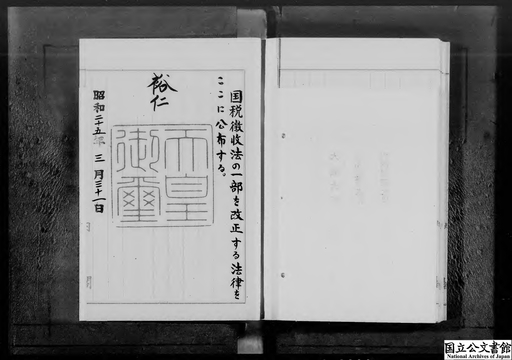 国税徴收法の一部を改正する法律を
ここに公布する。
裕仁
天皇
御璽
昭和二十五年三月三十一日
国立公文書館
National Archives of Japan